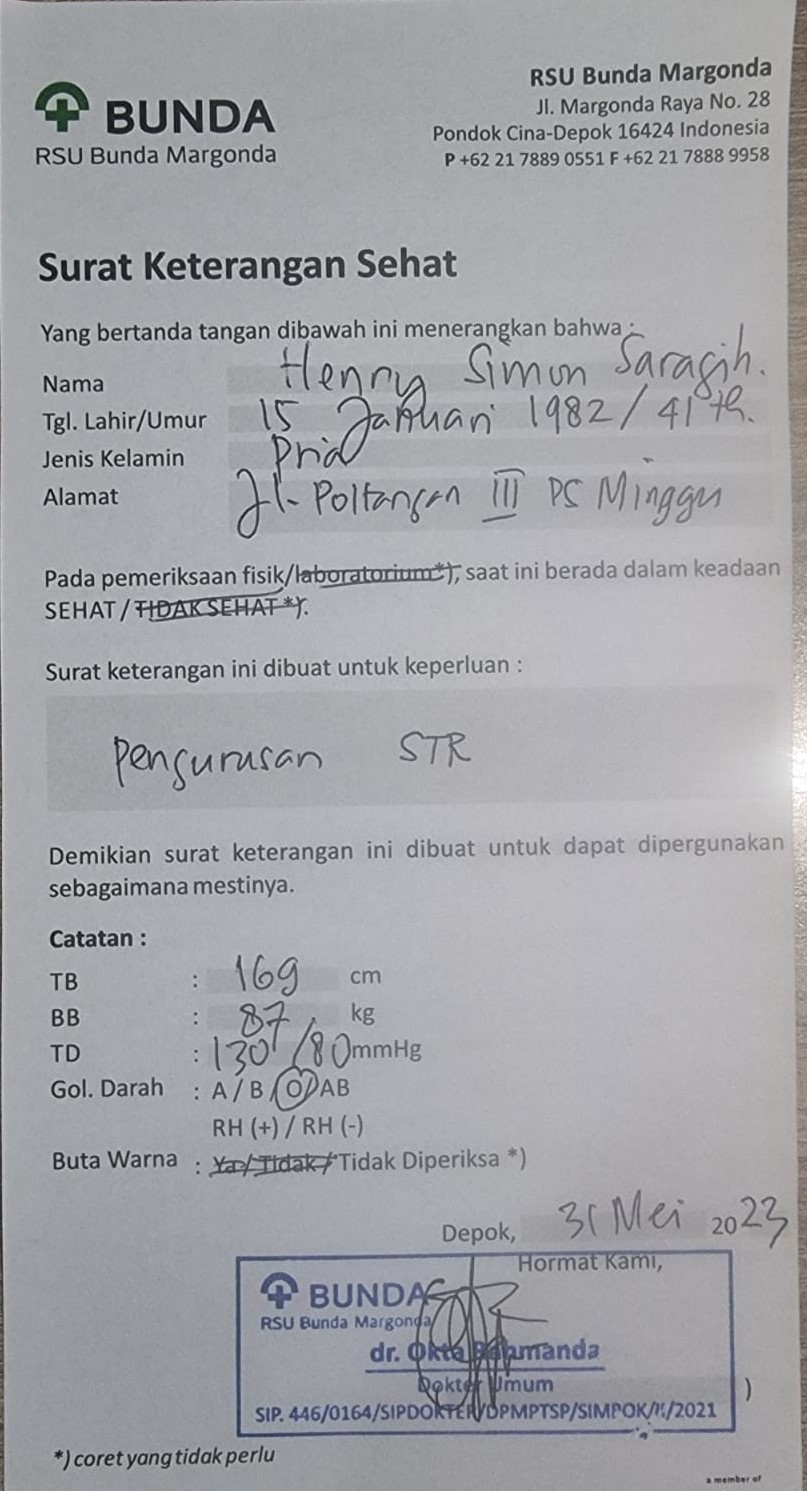 BUNDA
RSU Bunda Margonda
RSU Bunda Margonda
Jl. Margonda Raya No. 28
Pondok Cina-Depok 16424 Indonesia
P +62 21 7889 0551 F +62 21 7888 9958
Surat Keterangan Sehat
Yang bertanda tangan dibawah ini menerangkan bahwa :
Nama Henry Simon Saragih.
Tgl. Lahir/Umur 15 Januari 1982 / 41 th.
Jenis Kelamin Pria
Alamat Jl. Poltangan III PS Minggu
Pada pemeriksaan fisik/laboratorium*), saat ini berada dalam keadaan
SEHAT / TIDAK SEHAT *).
Surat keterangan ini dibuat untuk keperluan :
Pengurusan STR
Demikian surat keterangan ini dibuat untuk dapat dipergunakan
sebagaimana mestinya.
Catatan :
TB : 169 cm
BB : 87 kg
TD : 130/80 mmHg
Gol. Darah : A / B / O / AB
RH (+) / RH (-)
Buta Warna : Ya / Tidak / Tidak Diperiksa *)
Depok, 31 Mei 2023
Hormat Kami,
BUNDA
RSU Bunda Margonda
dr. Okta
Dokter Umum
SIP. 446/0164/SIPDOKTER/DPMPTSP/SIMPOK/ /2021
)
*) coret yang tidak perlu
a member of